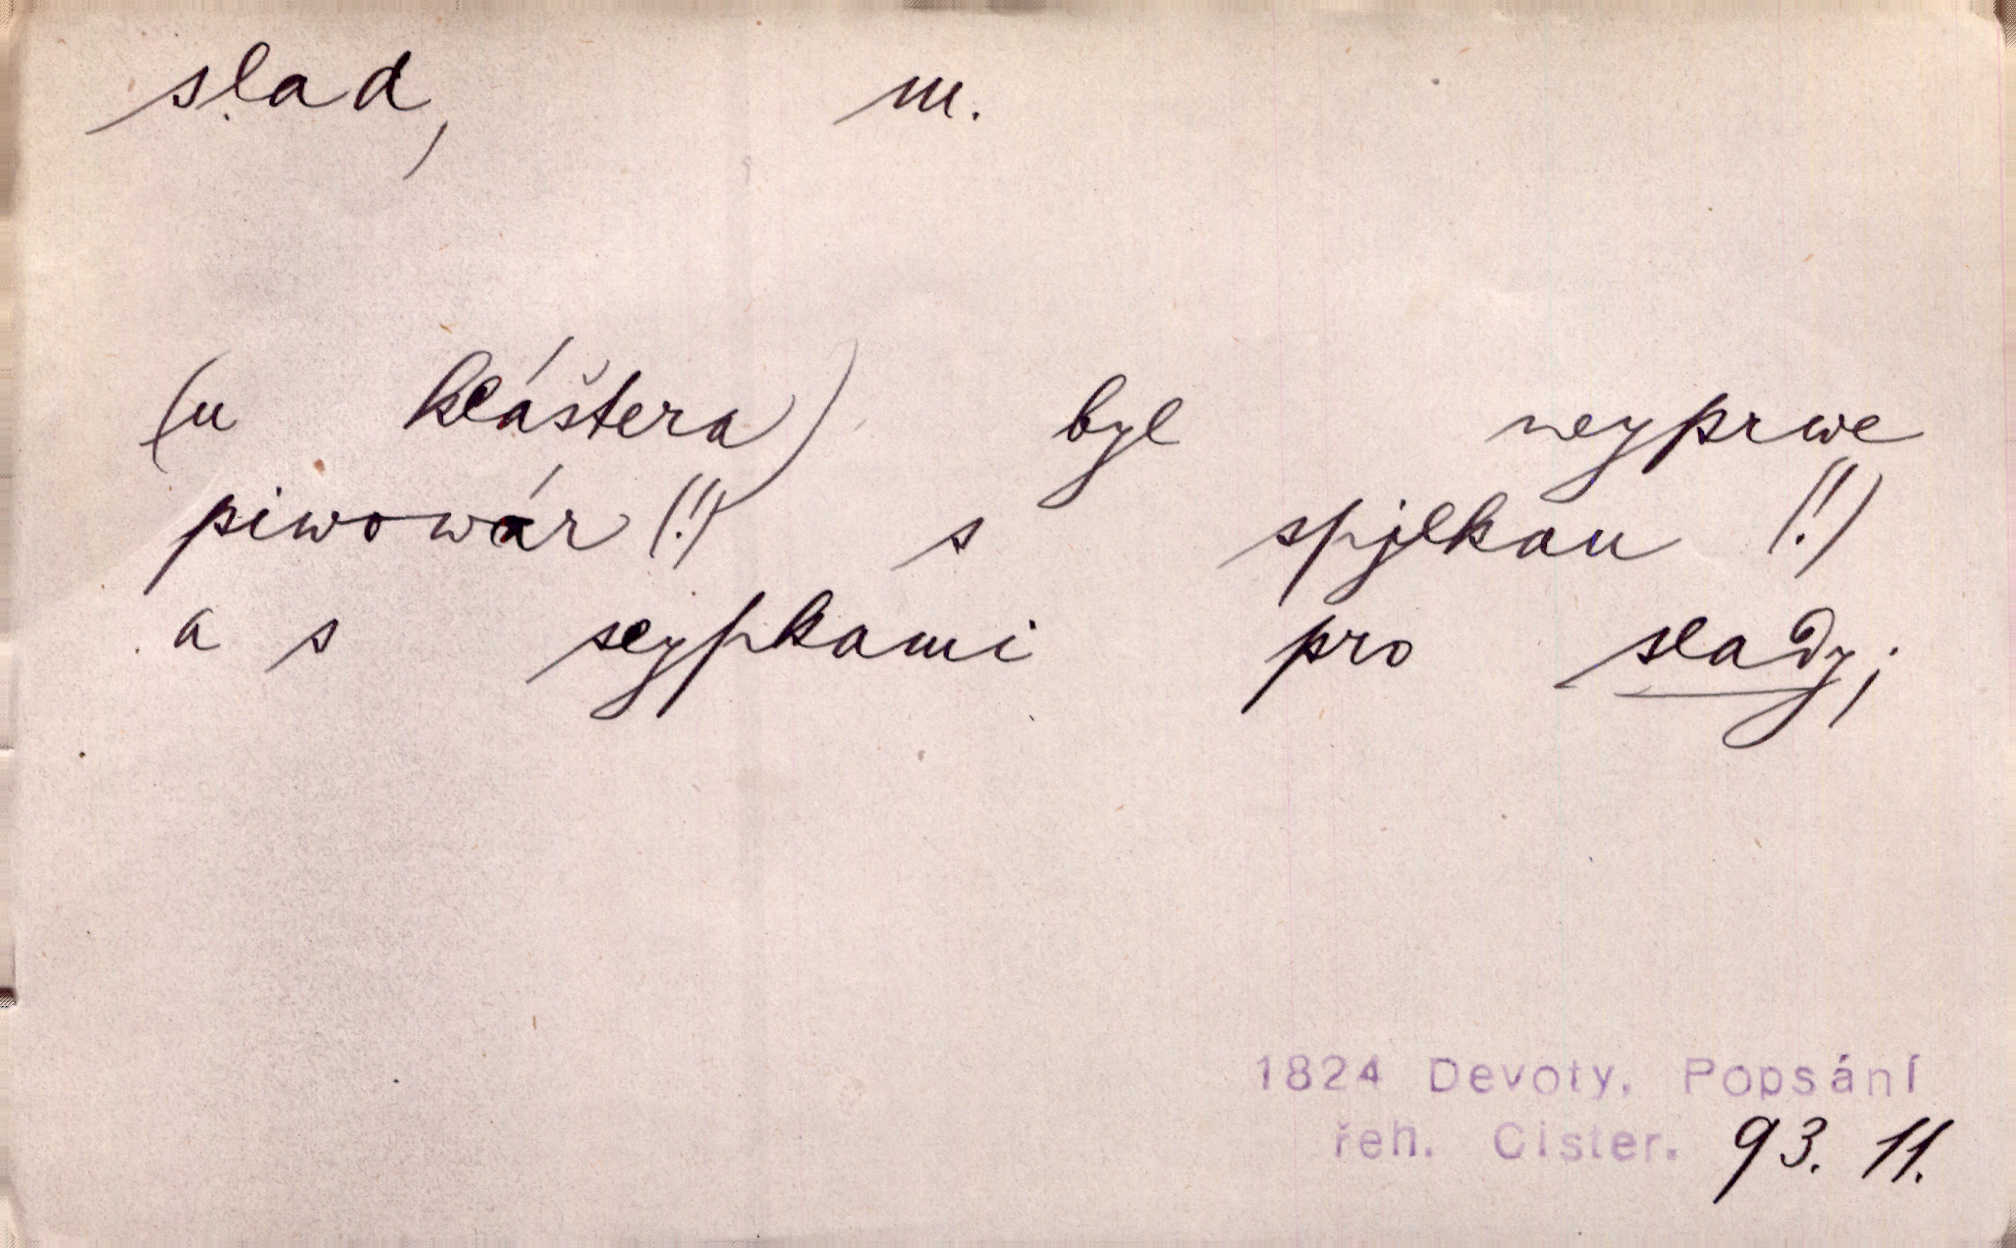 slad, m.
(u kláštera) byl neyprwe
piwowár (!) s spjlkau (!)
a s seypkami pro slady;
1824 Devoty, Popsání
řeh. Cister. 93. 11.